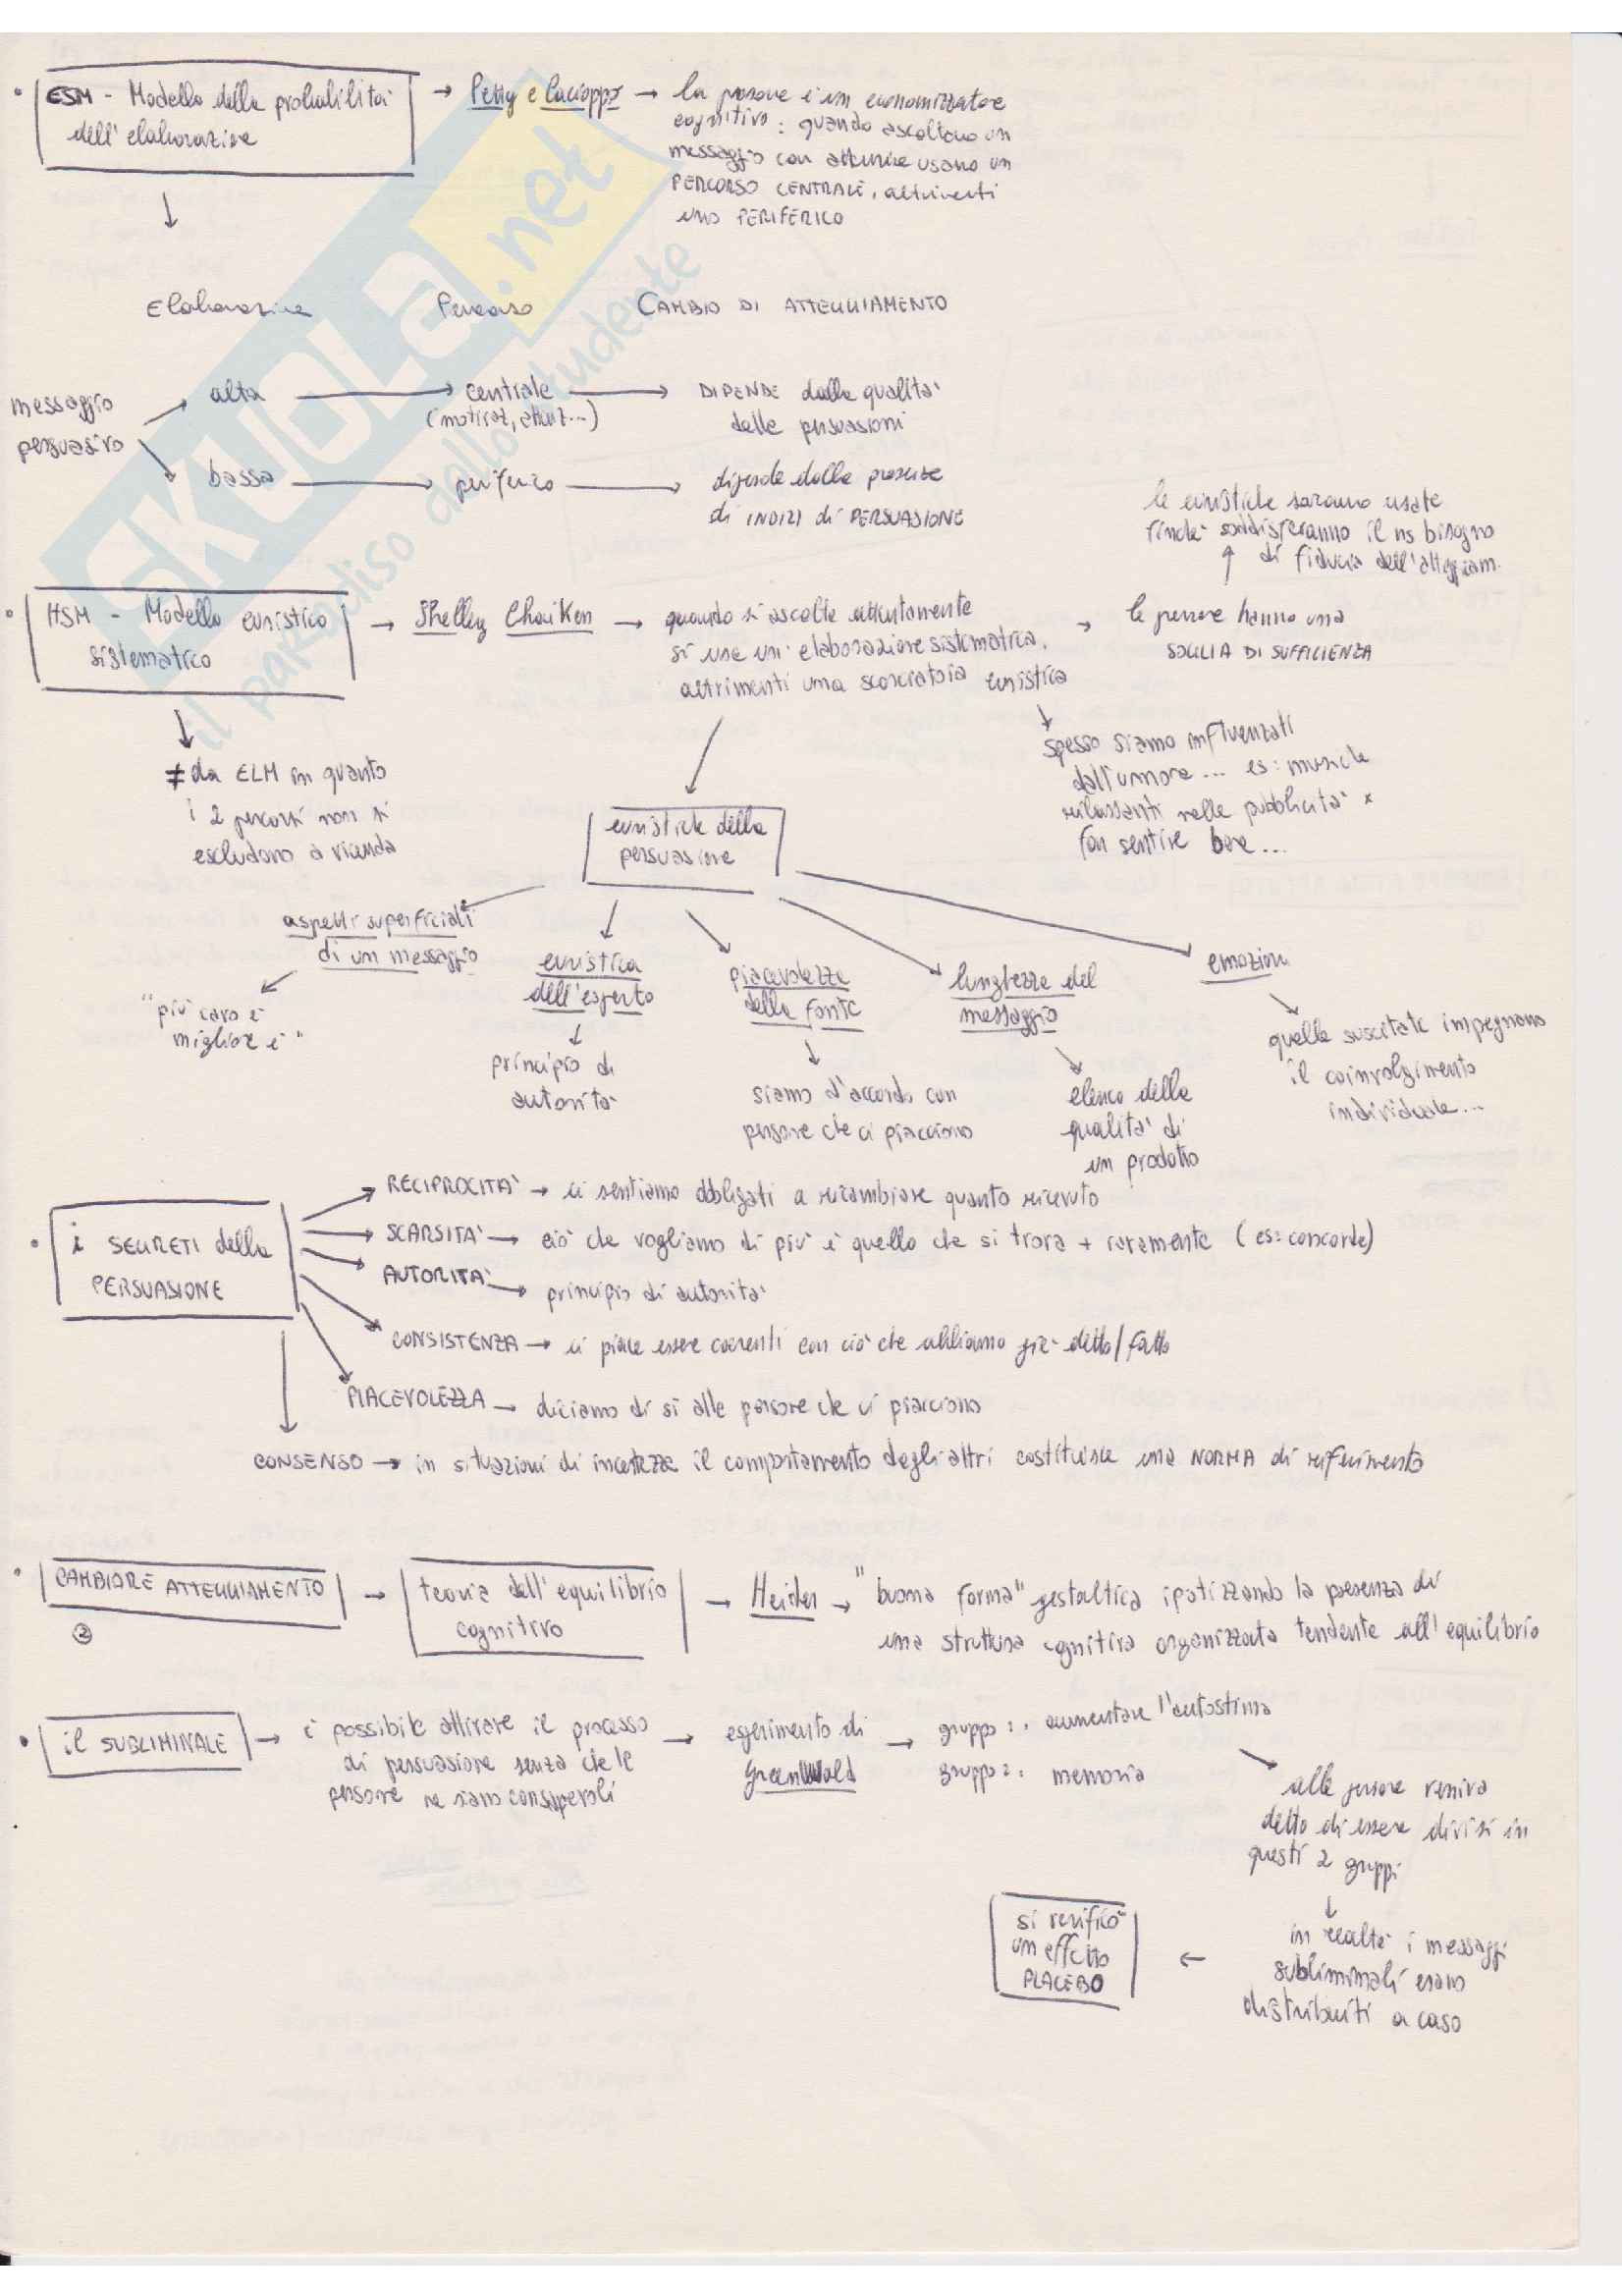 • ESM - Modello della probabilità dell'elaborazione
→ Petty e Cacioppo → la persona è un economizzatore
cognitivo: quando ascoltano un
messaggio con attenzione usano un
PERCORSO CENTRALE, altrimenti
uno PERIFERICO
Elaborazione Percorso CAMBIO DI ATTEGGIAMENTO
messaggio
persuasivo
alta → centrale → DIPENDE dalla qualità
(motivaz, attenz...) delle persuasioni
bassa → periferico → dipende dalla presenza
di INDIZI di PERSUASIONE
le euristiche saranno usate
finché soddisferanno il ns bisogno
di fiducia dell'atteggiam.
• HSM - Modello euristico
sistematico
→ Shelley Chaiken → quando si ascolta attentamente
si usa un'elaborazione sistematica,
altrimenti una scorciatoia euristica
→ le persone hanno una
SOGLIA DI SUFFICIENZA
≠ da ELM in quanto
i 2 percorsi non si
escludono a vicenda
spesso siamo influenzati
dall'umore... es: musiche
rilassanti nelle pubblicità x
far sentire bene...
euristiche della
persuasione
aspetti superficiali
di un messaggio
"più caro è
migliore è"
euristica
dell'esperto
principio di
autorità
piacevolezza
della fonte
siamo d'accordo con
persone che ci piacciono
lunghezza del
messaggio
elenco delle
qualità di
un prodotto
emozioni
quelle suscitate impegnano
il coinvolgimento
individuale...
• i SEGRETI della
PERSUASIONE
RECIPROCITÀ → ci sentiamo obbligati a ricambiare quanto ricevuto
SCARSITÀ → ciò che vogliamo di più è quello che si trova + raramente (es: concorde)
AUTORITÀ → principio di autorità
CONSISTENZA → ci piace essere coerenti con ciò che abbiamo già detto/fatto
PIACEVOLEZZA → diciamo di sì alle persone che ci piacciono
CONSENSO → in situazioni di incertezza il comportamento degli altri costituisce una NORMA di riferimento
• CAMBIARE ATTEGGIAMENTO
②
→ teoria dell'equilibrio
cognitivo
→ Heider → "buona forma" gestaltica ipotizzando la presenza di
una struttura cognitiva organizzata tendente all'equilibrio
• il SUBLIMINALE → è possibile attivare il processo
di persuasione senza che le
persone ne siano consapevoli
→ esperimento di
Greenwald
→ gruppo 1: aumentare l'autostima
gruppo 2: memoria
alle persone veniva
detto di essere divisi in
questi 2 gruppi
in realtà i messaggi
subliminali erano
distribuiti a caso
←
si verificò
un effetto
PLACEBO
SKUOLA.net
il paradiso dello studente